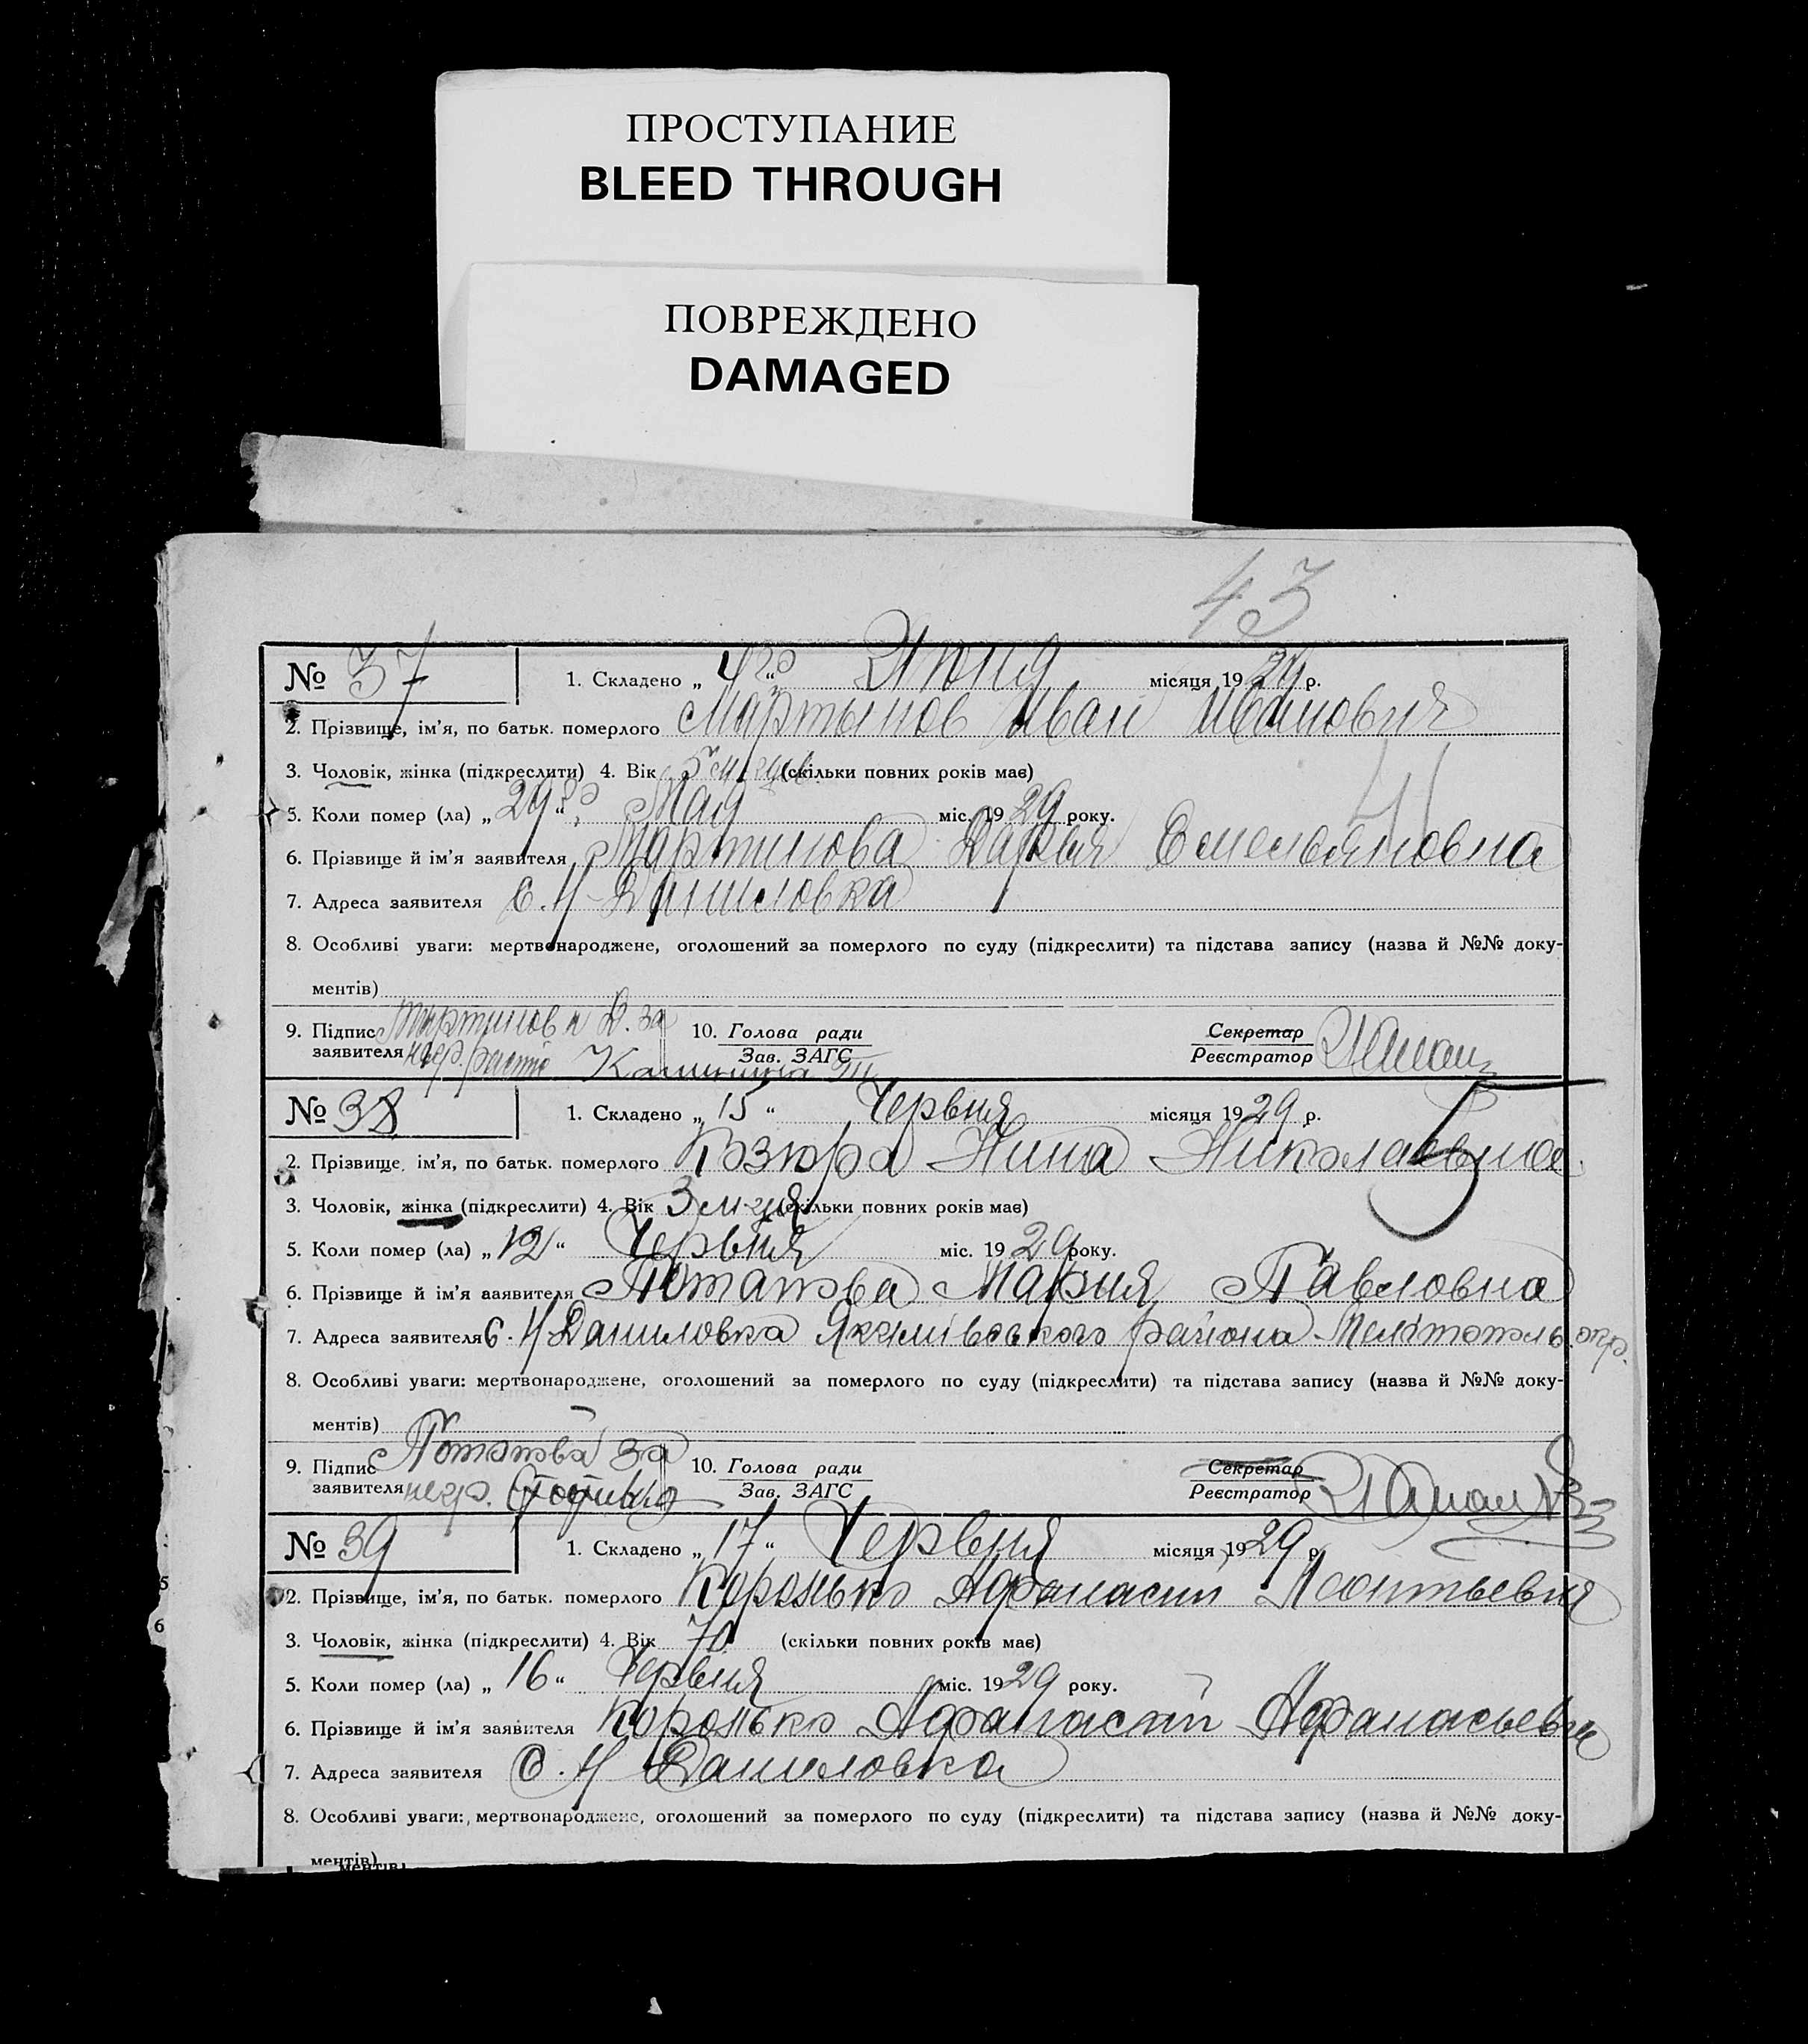 ПРОСТУПАНИЕ
BLEED THROUGH
ПОВРЕЖДЕНО
DAMAGED
43
№ 37 1. Складено „ 4го “ Июня місяця 1929 р.
2. Прізвище, ім'я, по батьк. померлого Мартынов Иван Иванович
3. Чоловік, жінка (підкреслити) 4. Вік 5 (скільки повних років має)
5. Коли помер (ла) „ 29го “ Мая міс. 1929 року.
41
6. Прізвище й ім'я заявителя Мартинова Дарья Емельяновна
7. Адреса заявителя с. Н-Даниловка
8. Особливі уваги: мертвонароджене, оголошений за померлого по суду (підкреслити) та підстава запису (назва й №№ доку-
ментів)
9. Підпис Мартинова Д. за 10. Голова ради Секретар
заявителя негр. Зав. ЗАГС Реєстратор
№ 38 1. Складено „ 15 “ Червня місяця 1929 р.
2. Прізвище, ім'я, по батьк. померлого Козюра Нина Николаевна
3. Чоловік, жінка (підкреслити) 4. Вік 3 м-ця (скільки повних років має)
5. Коли помер (ла) „ 12 “ Червня міс. 1929 року.
6. Прізвище й ім'я заявителя Потапова Мария Павловна
7. Адреса заявителя с. Н Даниловка Якимівського района Мелітополь. окр.
8. Особливі уваги: мертвонароджене, оголошений за померлого по суду (підкреслити) та підстава запису (назва й №№ доку-
ментів)
9. Підпис Потапова за 10. Голова ради Секретар
заявителя негр. Зав. ЗАГС Реєстратор
№ 39 1. Складено „ 17 “ Червня місяця 1929 р.
2. Прізвище, ім'я, по батьк. померлого Коронько Афанасий Леонтьевич
3. Чоловік, жінка (підкреслити) 4. Вік 70 (скільки повних років має)
5. Коли помер (ла) „ 16 “ Червня міс. 1929 року.
6. Прізвище й ім'я заявителя Коронько Афанасий Афанасьевич
7. Адреса заявителя с. Н Даниловка
8. Особливі уваги: мертвонароджене, оголошений за померлого по суду (підкреслити) та підстава запису (назва й №№ доку-
ментів)